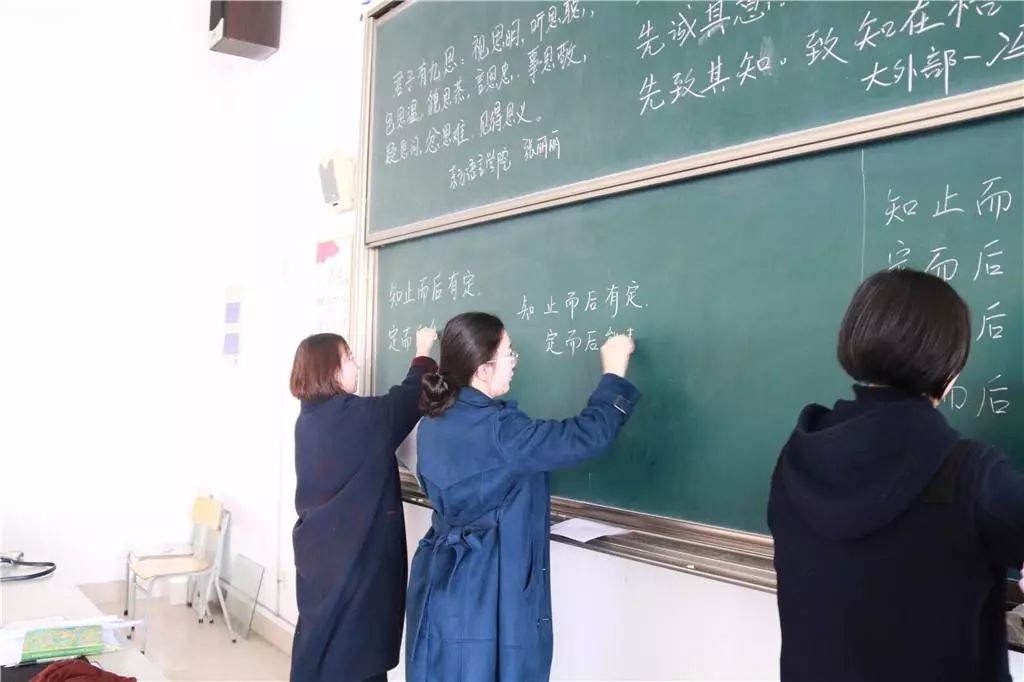 君子有九思：视思明，听思聪，
色思温，貌思恭，言思忠，事思敬，
疑思问，忿思难，见得思义。
语言学院 张丽丽
先诚其意
先致其知。致知在格
大外部一冯
知止而后有定.
定而
知止而后有定.
定而后
知止而
定而后
后
而后